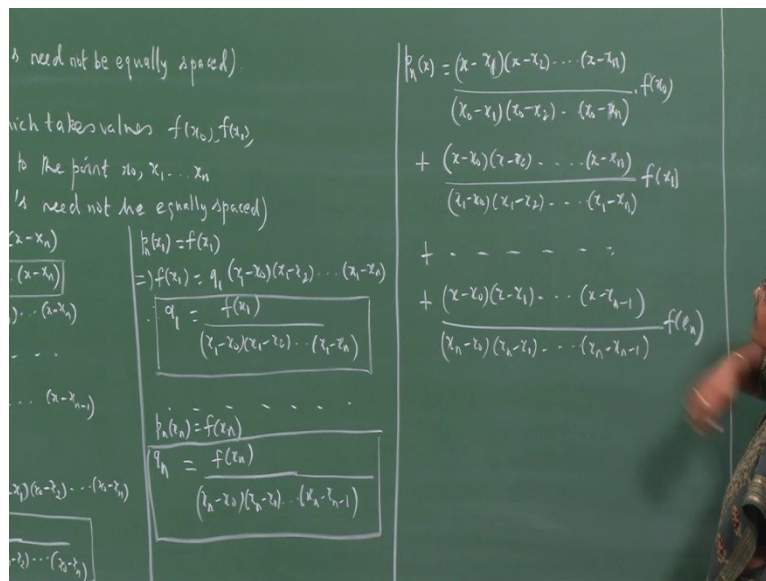 s need not be equally spaced).
hich takes values f(x₀), f(x₁),
to the point x₀, x₁ ... xₙ
's need not be equally spaced)
(x-xₙ)
(x-xₙ)
) ... (x-xₙ)
. . .
... (x-xₙ₋₁)
x₁)(x₀-x₂) ... (x₀-xₙ)
-x₂) ... (x₀-xₙ)
pₙ(x₁) = f(x₁)
=) f(x₁) = a₁ (x₁-x₀)(x₁-x₂) ... (x₁-xₙ)
∴ a₁ = f(x₁) / (x₁-x₀)(x₁-x₂) ... (x₁-xₙ)
. - - - - . .
pₙ(xₙ) = f(xₙ)
aₙ = f(xₙ) / (xₙ-x₀)(xₙ-x₁) ... (xₙ-xₙ₋₁)
pₙ(x) = (x-x₁)(x-x₂) .... (x-xₙ) / (x₀-x₁)(x₀-x₂) .. (x₀-xₙ) . f(x₀)
+ (x-x₀)(x-x₂) - .... (x-xₙ) / (x₁-x₀)(x₁-x₂) - .. (x₁-xₙ) f(x₁)
+ - - - - - - -
+ (x-x₀)(x-x₁) - ... (x-xₙ₋₁) / (xₙ-x₀)(xₙ-x₁) - ... (xₙ-xₙ₋₁) f(xₙ)